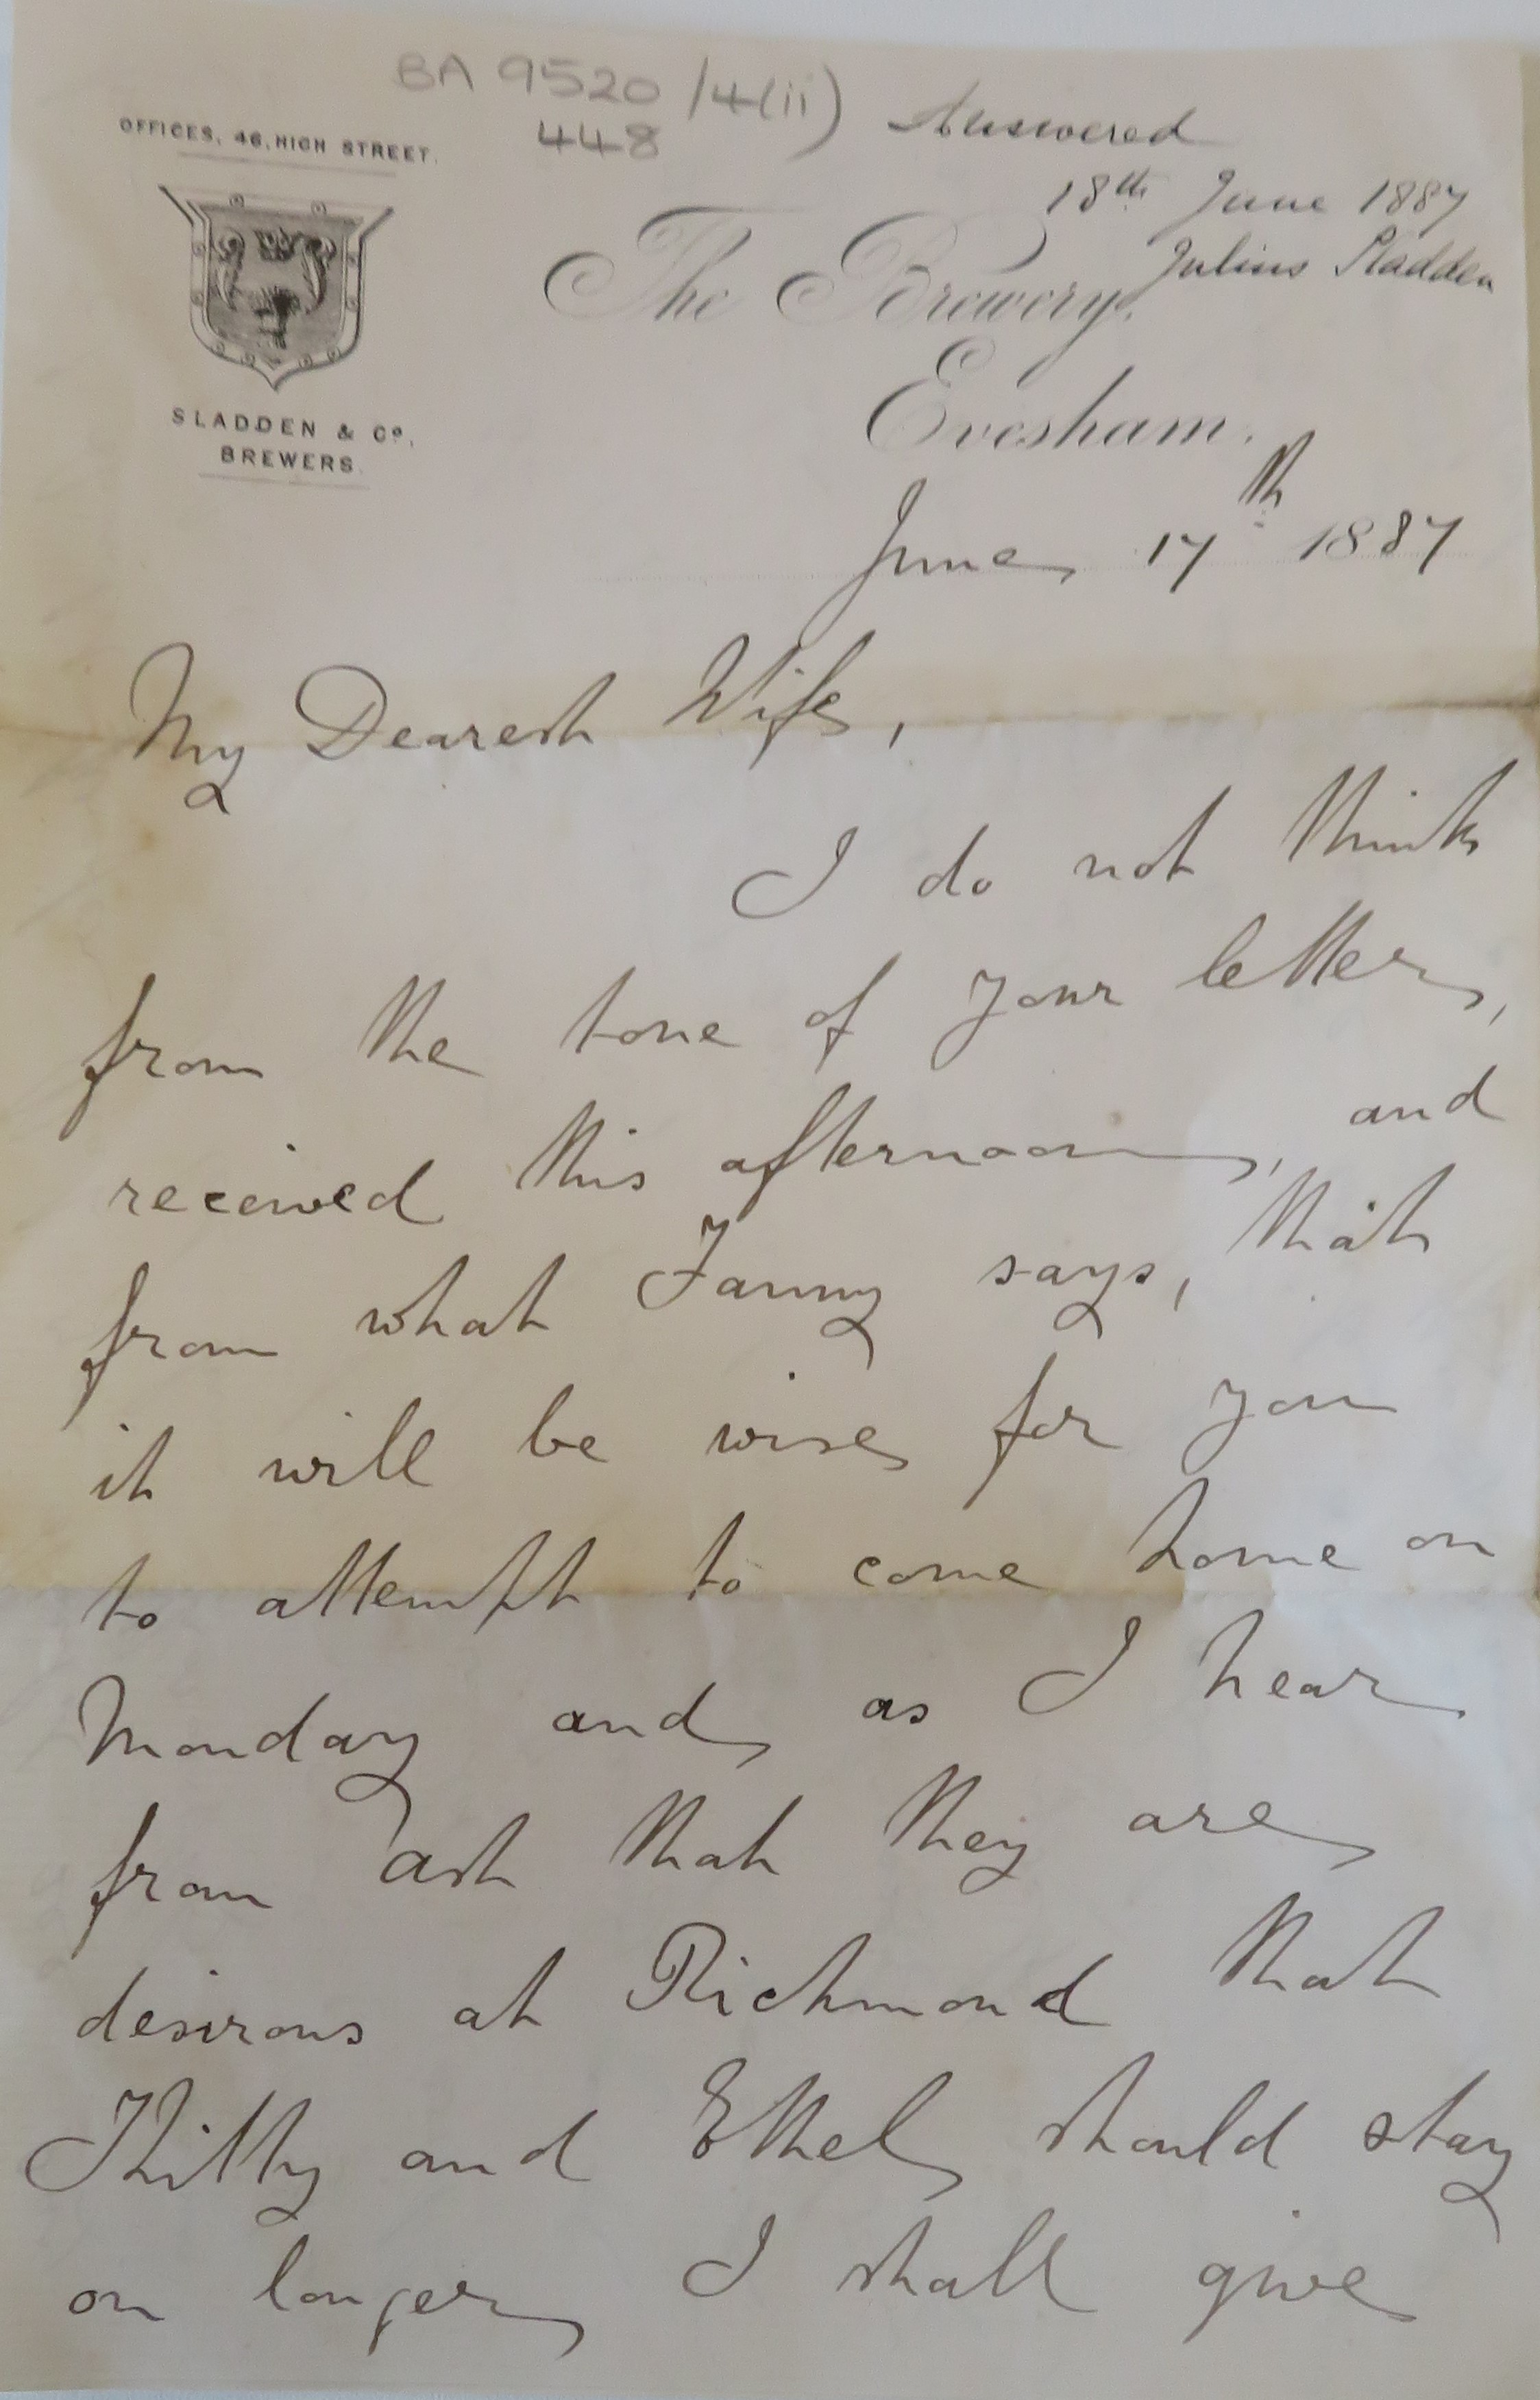 BA 9520/4(ii)
448
Answered
18th June 1887
Julius Sladden
OFFICES, 46, HIGH STREET.
SLADDEN & Co.
BREWERS.
The Brewery,
Evesham.
June 17th 1887
My Dearest Wife,
I do not think
from the tone of your letter,
received this afternoon, and
from what Fanny says, that
it will be wise for you
to attempt to come home on
Monday and as I hear
from Ash that they are
desirous at Richmond that
Kitty and Ethel should stay
on longer I shall give